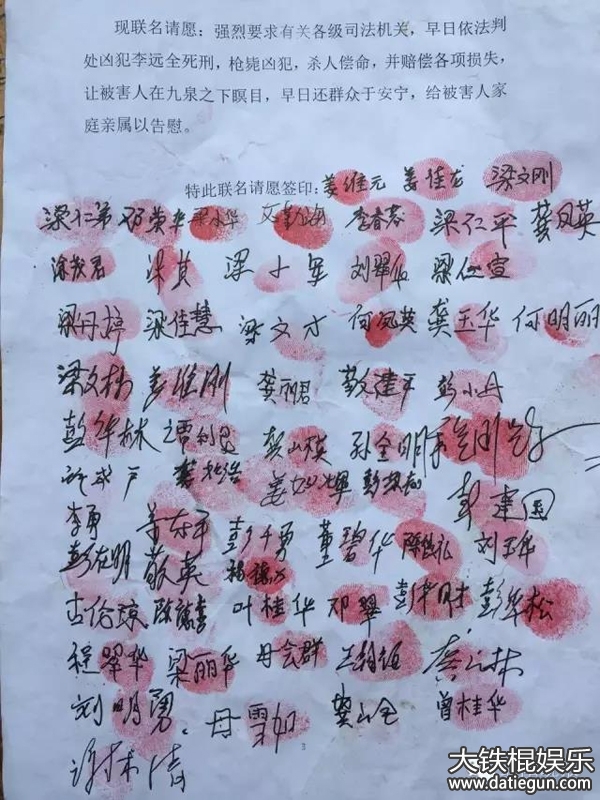 现联名请愿：强烈要求有关各级司法机关，早日依法判
处凶犯李远全死刑，枪毙凶犯，杀人偿命，并赔偿各项损失，
让被害人在九泉之下瞑目，早日还群众于安宁，给被害人家
庭亲属以告慰。
特此联名请愿签印：姜维元 姜佳龙 梁文刚
梁仁弟 邓荣华 李春蓉 梁仁平 龚凤英
涂茂君 梁其 梁小军 刘翠仙 梁仁宣
梁丹婷 梁佳慧 梁文才 何凤英 龚玉华 何明丽
梁文栋 姜维刚 龚丽君 敬建平 彭小丹
彭华林 孙全明
许成户 彭建国
李勇 姜东平 彭千勇 董碧华 刘玉华
彭友明 敬英
古伦琼 叶桂华 邓翠 彭华松
程翠华 梁丽华 母会群
刘明勇 母雪如 龚山全 曾桂华
谢林清
3
大铁棍娱乐
www.datiegun.com